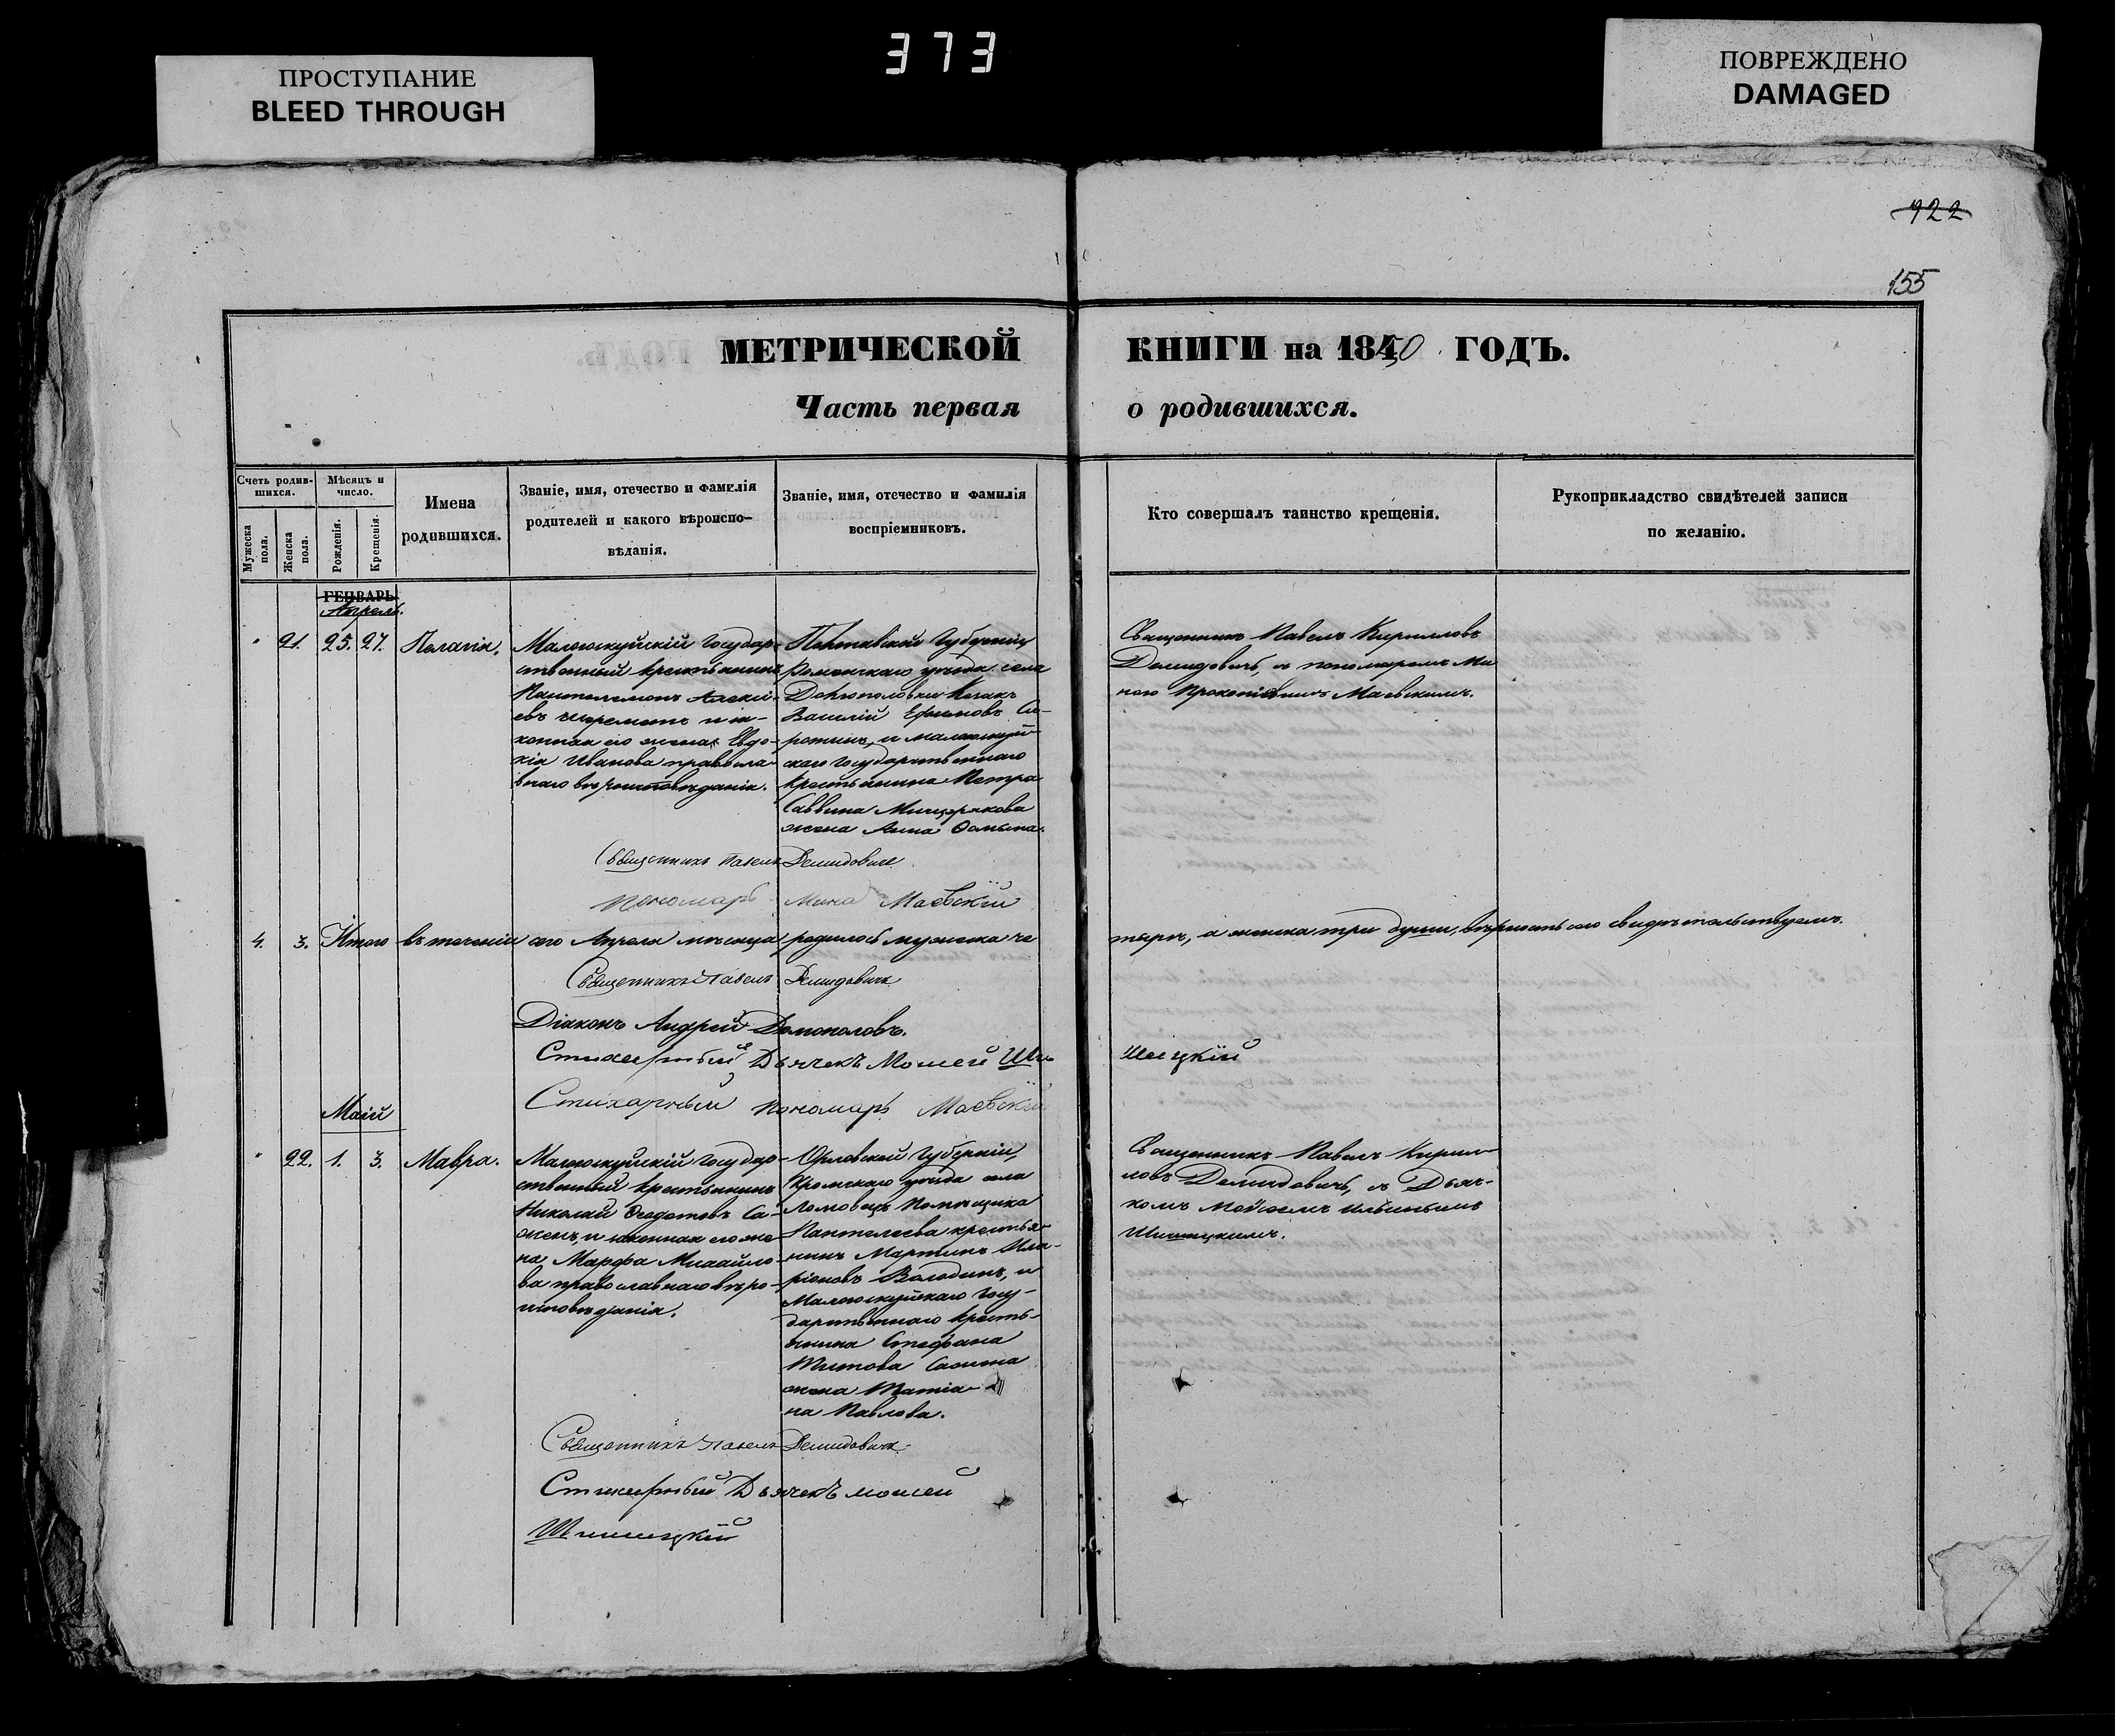 373
ПРОСТУПАНИЕ
BLEED THROUGH
ПОВРЕЖДЕНО
DAMAGED
922
155
МЕТРИЧЕСКОЙ КНИГИ на 1850 ГОДЪ.
Часть первая о родившихся.
Счетъ родив-
шихся.
Мужеска пола.
Женска пола.
Мѣсяцъ и
число.
Рожденія.
Крещенія.
Имена
родившихся.
Званіе, имя, отечество и фамилія
родителей и какого вѣроиспо-
вѣданія.
Званіе, имя, отечество и фамилія
воспріемниковъ.
Кто совершалъ таинство крещенія.
Рукоприкладство свидѣтелей записи
по желанію.
ГЕНВАРЬ
Апрель.
" 21. 25. 27. Пелагія.
Малоюскуйскій государ-
ственный крестьянинъ
Пантелемонъ Алексі-
евъ и за-
конная его жена Евдо-
кія Иванова православ-
наго вѣроисповѣданія.
Полтавской Губерніи
Роменскаго уѣзда села
Козакъ
Василій Ефимовъ Си-
ротинъ, и Малоюскуй-
скаго государственнаго
крестьянина Петра
Саввина Мищерякова
жена Анна Фомина.
Священникъ Павелъ Кирилловъ
Демидовичь, съ пономаремъ Ми
ною Прокопіевымъ Маевскимъ.
Священникъ Павелъ Демидовичъ
Пономарь Мина Маевскій
4. 3. Итого въ теченіи сего Апреля мѣсяца родилось мужеска че
тыре, а женска три души, вѣрность сего свидѣтельствуемъ.
Священникъ Павелъ Демидовичъ
Діаконъ Андрей Домополовъ.
Стихарный Дьячекъ Моисей Ши-
шицкій
Стихарный пономарь Маевскій
Маій
" 22. 1. 3. Мавра.
Малоюскуйскій государ-
ственный крестьянинъ
Николай Феодотовъ Са-
женъ, и законная его же
на Марфа Михайло-
ва православнаго вѣро-
исповѣданія.
Орловской Губерніи,
Кромскаго уѣзда села
Ломовецъ Помѣщика
Пантелеева крестья-
нинъ Мартинъ Ила-
ріоновъ Володинъ, и
Малоюскуйскаго госу-
дарственнаго кресть-
янина Стефана
Титова
жена Татіа-
на Павлова.
Священникъ Павелъ Кирил-
ловъ Демидовичь, съ Дьяч-
комъ Моисеемъ Ильинымъ
Шишицкимъ.
Священникъ Павелъ Демидовичъ.
Стихарный Дьячекъ Моисей
Шишицкій